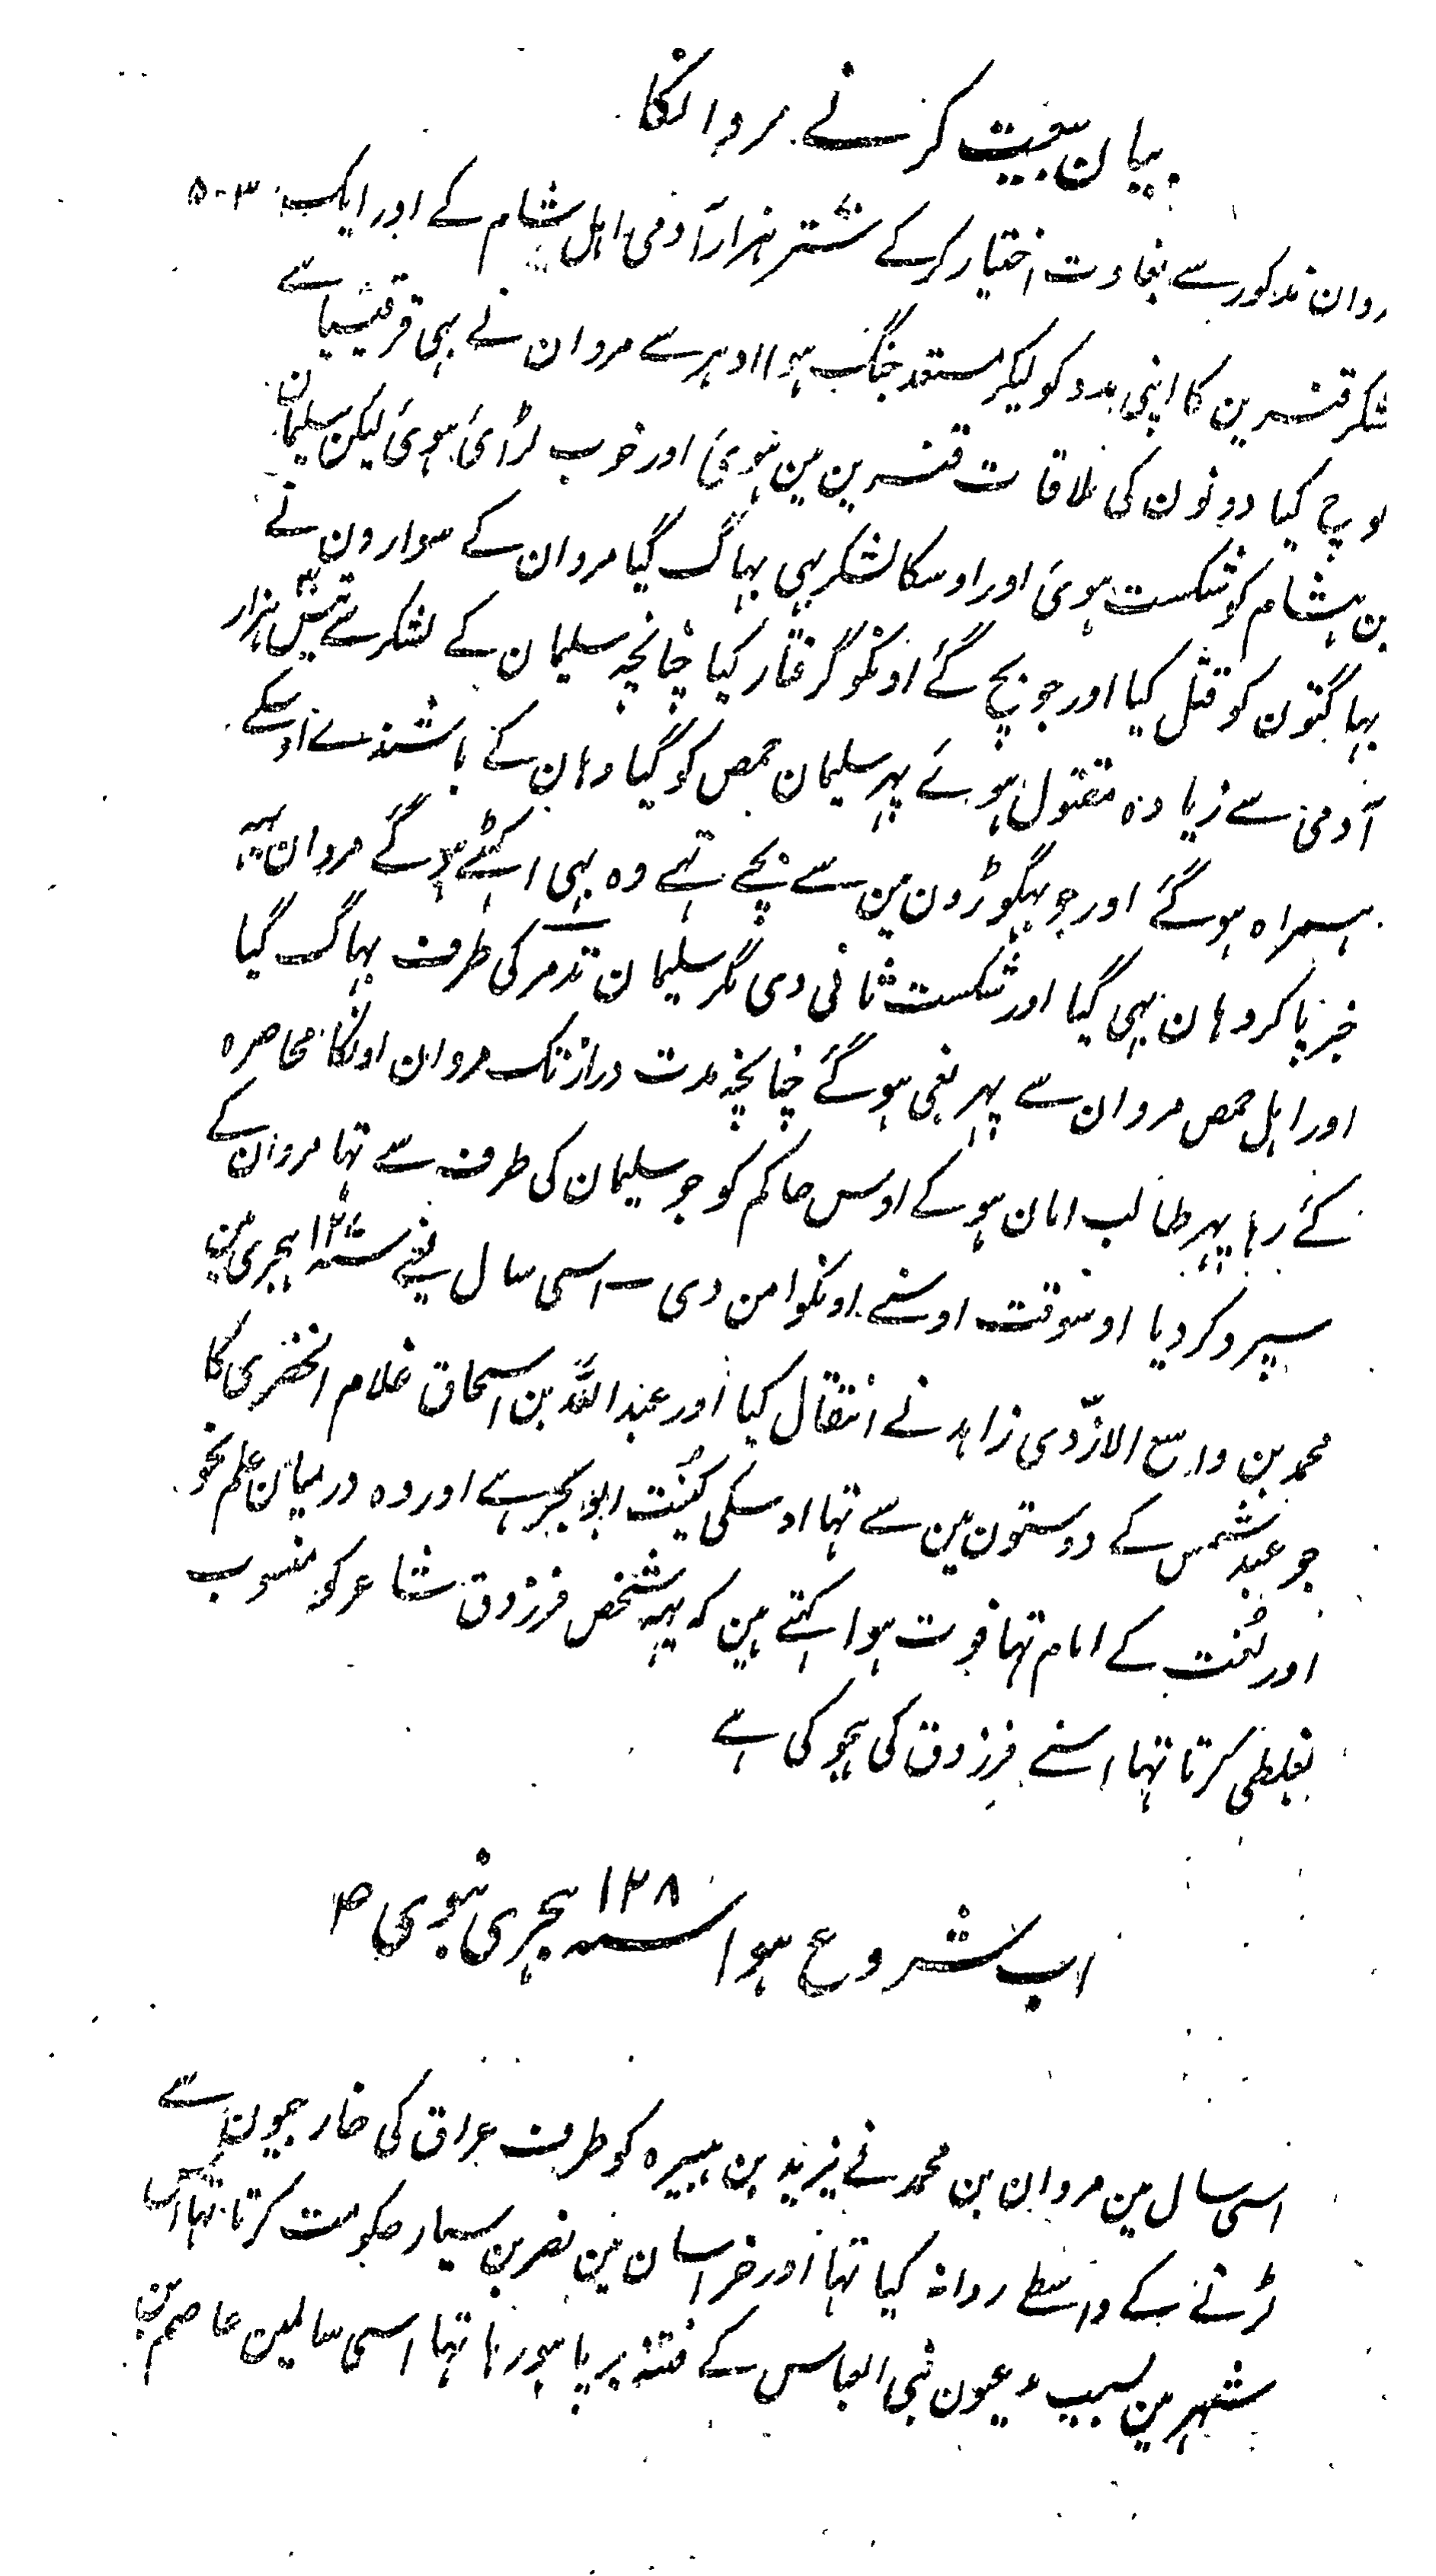 بیان بیعت کرنے مروانکا
۵۰۳
روان مذکور سے بغاوت اختیار کرکے ستر ہزار آدمی اہل شام کے اور ایک
شکر قنسرین کا اپنی مدد کو لیکر مستعد جنگ ہوا اودہر سے مروان نے بہی قرقیسیا سے
وچ کیا دونون کی ملاقات قنسرین مین ہوئی اور خوب لڑائی ہوئی لیکن سلیمان
بن ہشام کو شکست ہوئی اور اوسکا لشکر بہی بہاگ گیا مروان کے سوارون نے
بہاگتون کو قتل کیا اور جو بچ گئے اونکو گرفتار کیا چنانچہ سلیمان کے لشکر سے تیس ہزار
آدمی سے زیادہ مقتول ہوئے پہر سلیمان حمص کو گیا وہان کے باشندے اوسکے
ہمراہ ہو گئے اور جو بہگوڑون مین سے بچے تہے وہ بہی اکٹہے ہو گے مروان یہہ
خبر پا کر وہان بہی گیا اور شکست ثانی دی مگر سلیمان تدمر کی طرف بہاگ گیا
اور اہل حمص مروان سے پہر بغی ہو گئے چنانچہ مدت دراز تک مروان اونکا محاصرہ
کئے رہا پہر طالب امان ہو کے اوس حاکم کو جو سلیمان کی طرف سے تہا مروان کے
سپرد کر دیا اوسوقت اوسنے اونکو امن دی ۔ اسی سال یعنے سنہ ۱۲۷ ہجری مین
محمد بن واسع الازدی زاہد نے انتقال کیا اور عبد اللہ بن اسحاق غلام الحضری کا
جو عبد شمس کے دوستون مین سے تہا اوسکی کنیت ابو بحر ہے اور وہ درمیان علم نحو
اور لغت کے امام تہا فوت ہوا کہتے ہین کہ یہہ شخص فرزدق شاعر کو منسوب
بغلطی کرتا تہا اسنے فرزدق کی ہجو کی ہے
اب شروع ہوا سنہ ۱۲۸ ہجری نبوی ص
اسی سال مین مروان بن محمد نے یزید بن ہبیرہ کو طرف عراق کی خارجیون سے
لڑنے کے واسطے روانہ کیا تہا اور خراسان مین نصر بن سیار حکومت کرتا تہا اس
شہر مین بسبب دعیون بنی العباس کے فتنہ برپا ہو رہا تہا اسی سالمین عاصم بن